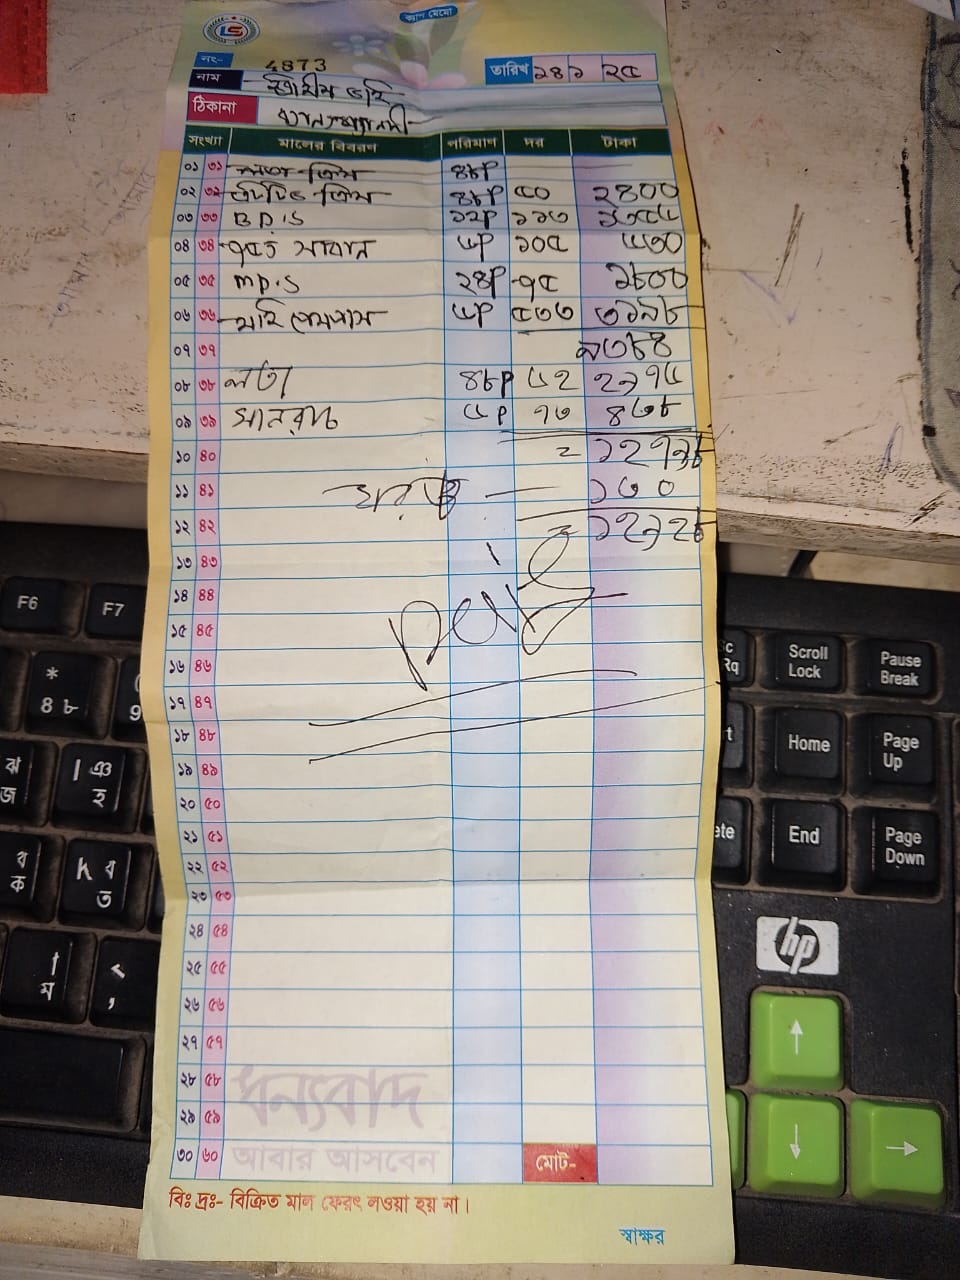 ক্যাশ মেমো
LS
নং- 4873 তারিখ ২৪ ১ ২৫
নাম ভাই
ঠিকানা
সংখ্যা মালের বিবরণ পরিমাণ দর টাকা
০১ ৩১ লতা ক্রিম ৪৮P
০২ ৩২ ক্রিম ৪৮P ৫০ ২৪০০
০৩ ৩৩ B.P.S ১২P ১১৩ ১৩৫৬
০৪ ৩৪ সাবান ৬P ১০৫ ৬৩০
০৫ ৩৫ M.P.S ২৪P ৭৫ ১৮০০
০৬ ৩৬ ৬P ৫৩৩ ৩১৯৮
০৭ ৩৭ ৯৩৮৪
০৮ ৩৮ লতা ৪৮P ৬২ ২৯৭৬
০৯ ৩৯ ৬P ৭৩ ৪৩৮
১০ ৪০ = ১২৭৯৮
১১ ৪১ খরচ — ১৩০
১২ ৪২ = ১২৯২৮
১৩ ৪৩
১৪ ৪৪ paid
১৫ ৪৫
১৬ ৪৬
১৭ ৪৭
১৮ ৪৮
১৯ ৪৯
২০ ৫০
২১ ৫১
২২ ৫২
২৩ ৫৩
২৪ ৫৪
২৫ ৫৫
২৬ ৫৬
২৭ ৫৭
২৮ ৫৮ ধন্যবাদ
২৯ ৫৯
৩০ ৬০ আবার আসবেন মোট-
বিঃ দ্রঃ- বিক্রিত মাল ফেরৎ লওয়া হয় না।
স্বাক্ষর
F6 F7
* 4 ৮ 9
Scroll Lock
Pause Break
Home
Page Up
End
Page Down
ঝ জ
। ঞ হ
খ ক
K থ ত
া ম
,
hp